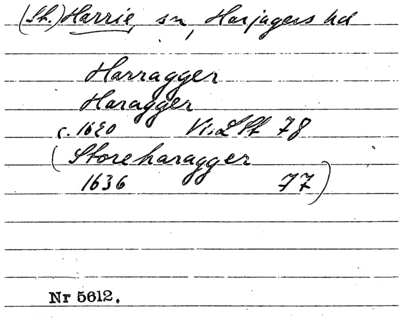 (St.) Harrie, sn, Harjagers hd
Harragger
Haragger
c. 1620 Vi. LSt 78
(Storeharagger
1636 77)
Nr 5612.